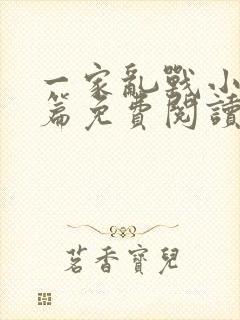 一家亂戰小
篇免費閱讀
茗香寶兒